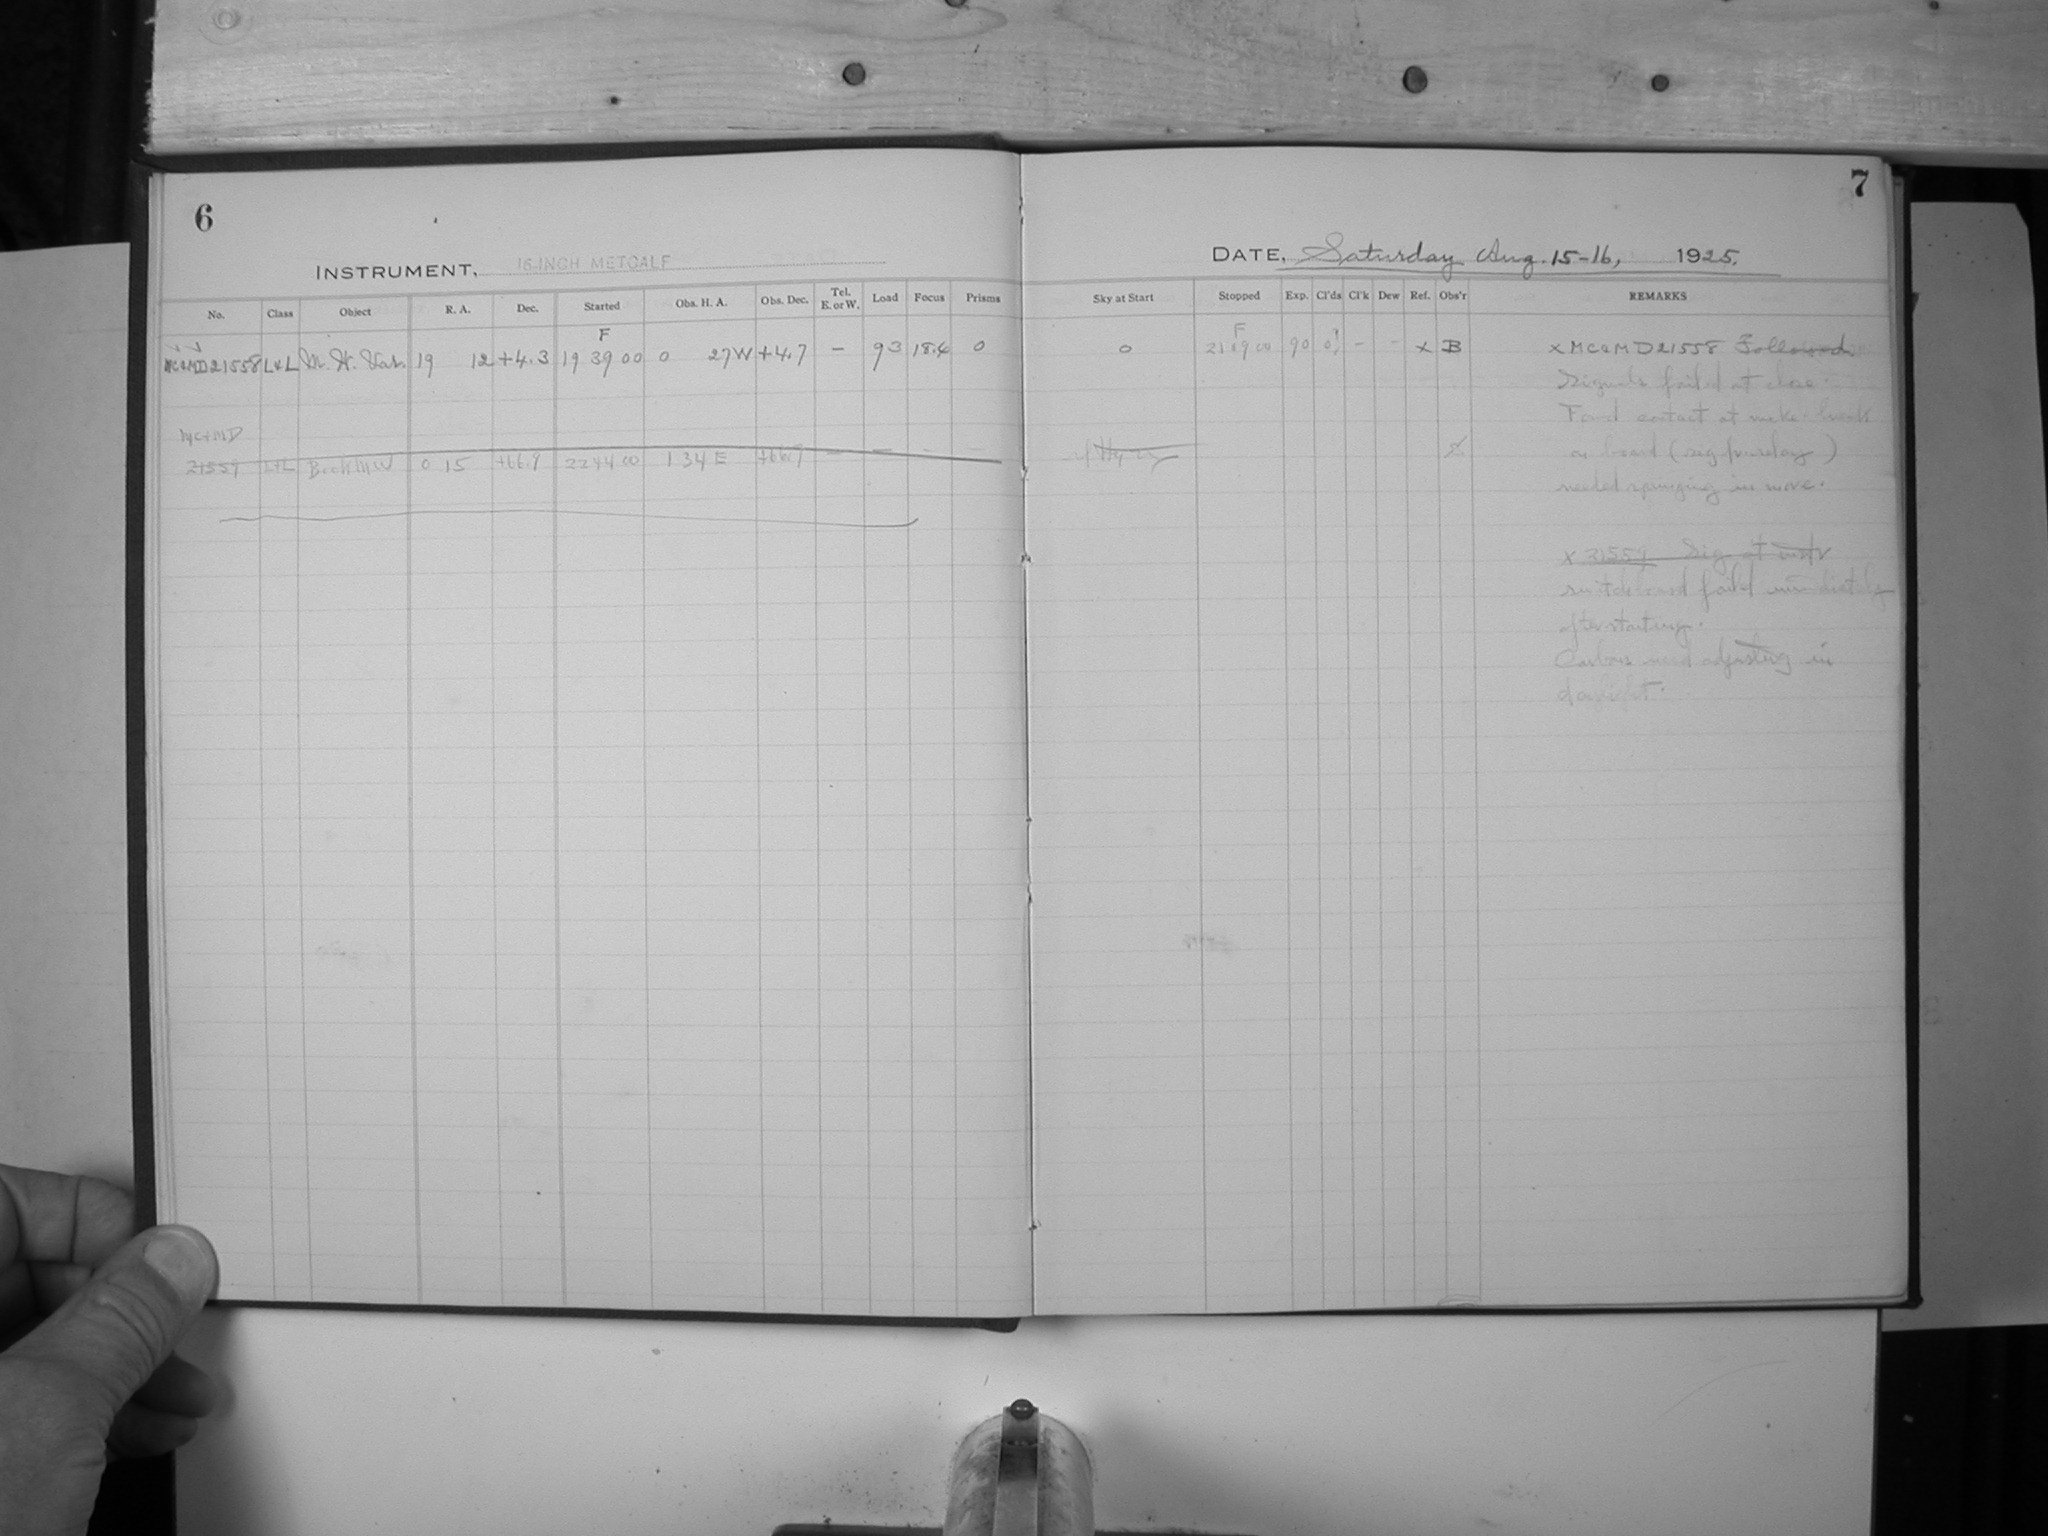 6
INSTRUMENT, 16-INCH METCALF
No. Class Object R. A. Dec. Started Obs. H. A. Obs. Dec. Tel. E. or W. Load Focus Prisms
F
MC&MD21558 L&L M. W. 19 12 +4.3 19 39 00 0 27W +4.7 — 93 18.4 0
MC&MD
21559 L&L 0 15 +66.9 22 44 00 1 34 E +66.9 — — - —
7
DATE, Saturday Aug. 15-16, 1925.
Sky at Start Stopped Exp. Cl'ds Cl'k Dew Ref. Obs'r REMARKS
F
0 21 09 00 90 0 - - x B x MC&MD21558 Followed
Signals failed at close.
contact at
on board (sig )
needed in move.
x 21559 Sig at
failed immediately
after starting.
need adjusting in
daylight.